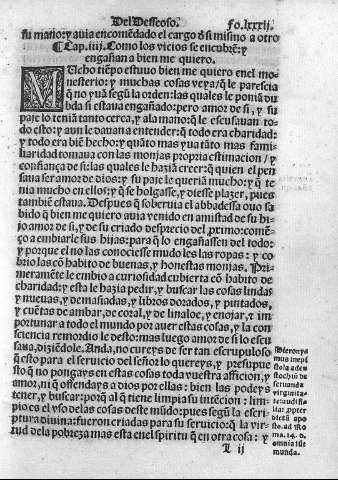 Del Desseoso. Fo.lxxxij.
su mano: y auia encomẽdado el cargo ð si mismo a otro
¶ Cap.iiij. Como los vicios se encubrẽ: y
engañan a bien me quiero.
MUcho tiempo estuuo bien me quiero en el mo
nesterio: y muchas cosas veya/ q̃ le parescia
q̃ no yuã segũ la orden: las quales le poniã du
bda si estaua engañado: pero amor de si, y su
paje lo teniã tanto cerca, y ala mano: q̃ le escusauan to
do esto: y aun le dauan a entender: q̃ todo era charidad:
y todo era biẽ hecho: y quãto mas yua tãto mas fami/
liaridad tomaua con las monjas propria estimacion / y
confiança de si: las quales le haziã creer: q̃ quien el pen
saua ser amor de dios: y su paje le queriã mucho: y q̃ te
nia mucho en ellos: y q̃ se holgasse, y diesse plazer, pues
tambiẽ estaua. Despues q̃ soberuia el abbadessa ouo sa
bido q̃ bien me quiero auia venido en amistad de su hi/
jo amor de si, y de su criado desprecio del primo: comẽ/
ço a embiarle sus hijas: para q̃ lo engañassen del todo:
y porque el no las conociesse mudo les las ropas: y co
brio las cõ habito de buenas, y honestas monjas. Pri
meramẽte le embio a curiosidad cubierta cõ habito de
charidad: y esta le hazia pedir, y buscar las cosas lindas
y nueuas, y demasiadas, y libros dorados, y pintados,
y cuẽtas de ambar, de coral, y de linaloe, y enojar, y im
portunar a todo el mundo por auer estas cosas, y la con
sciencia remordio le desto: mas luego amor de si lo escu
saua, diziẽdole. Anda, no cureys de ser tan escrupuloso
q̃ esto para el seruicio del señor lo quereys, y presupue
sto q̃ no pongays en estas cosas toda vuestra afficion, y
amor, ni q̃ offendays a dios por ellas: bien las podeys
tener, y buscar: porq̃ al q̃ tiene limpia su intención: lim/
pio es el vso delas cosas deste mũdo: pues segũ la escri/
ptura diuina: fueron criadas para su seruicio: q̃ la vir/
tud dela pobreza mas esta enel spiritu q̃ en otra cosa: y
L ij
Hieronymus
virginita
ad Ro
ma. 14.
omnia sũt
munda.